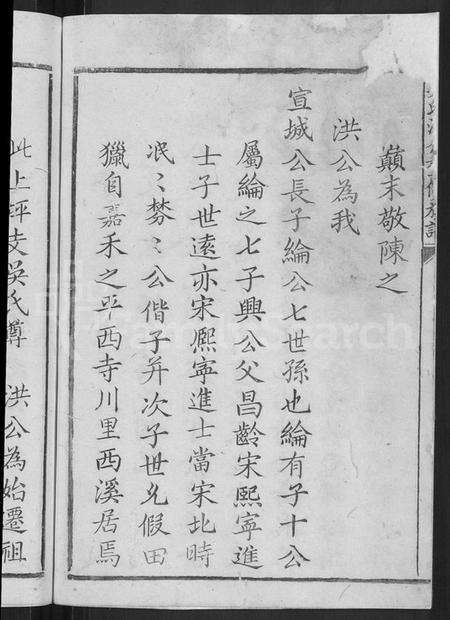 顛末敬陳之
洪公為我
宣城公長子綸公七世孫也綸有子十公
屬綸之七子興公父昌齡宋熙寧進
士子世遠亦宋熙寧進士當宋北時
泯〻棼〻公偕子并次子世允假田
獵自嘉禾之平西寺川里西溪居焉
此上坪支吳氏尊 洪公為始遷祖